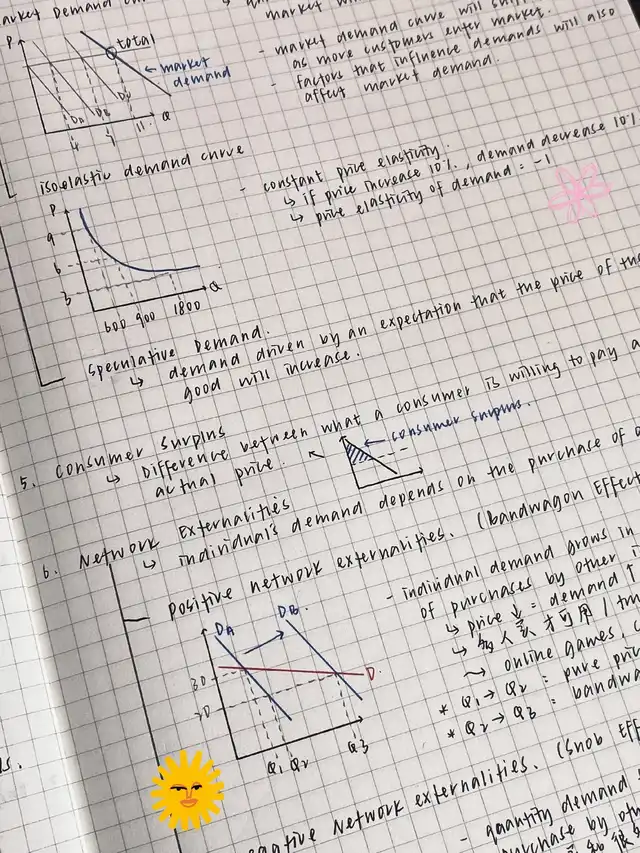 market demand
market demand curve will
as more customers enter market.
- factors that influence demands will also
affect market demand.
P
total
← market
demand
DA DB D
4 7 11 Q
isoelastic demand curve
- constant price elasticity.
↳ if price increase 10%, demand decrease 10%
↳ price elasticity of demand = -1
P
9
6
3
600 900 1800
Q
Speculative Demand.
↳ demand driven by an expectation that the price of the
good will increase.
5. Consumer Surplus
↳ Difference between what a consumer is willing to pay
actual price.
← consumer surplus.
6. Network Externalities
↳ individual's demand depends on the purchase of
Positive network externalities. (bandwagon Effect
- individual demand grows in
of purchases by other
↳ price ↓ = demand ↑
↳ 多人玩才可用 /
→ online games,
* Q1 → Q2 = pure
* Q2 → Q3 = bandwa
DA DB
D
30
20
Q1 Q2 Q3
Network externalities. (Snob Effect
- quantity demand
purchase by